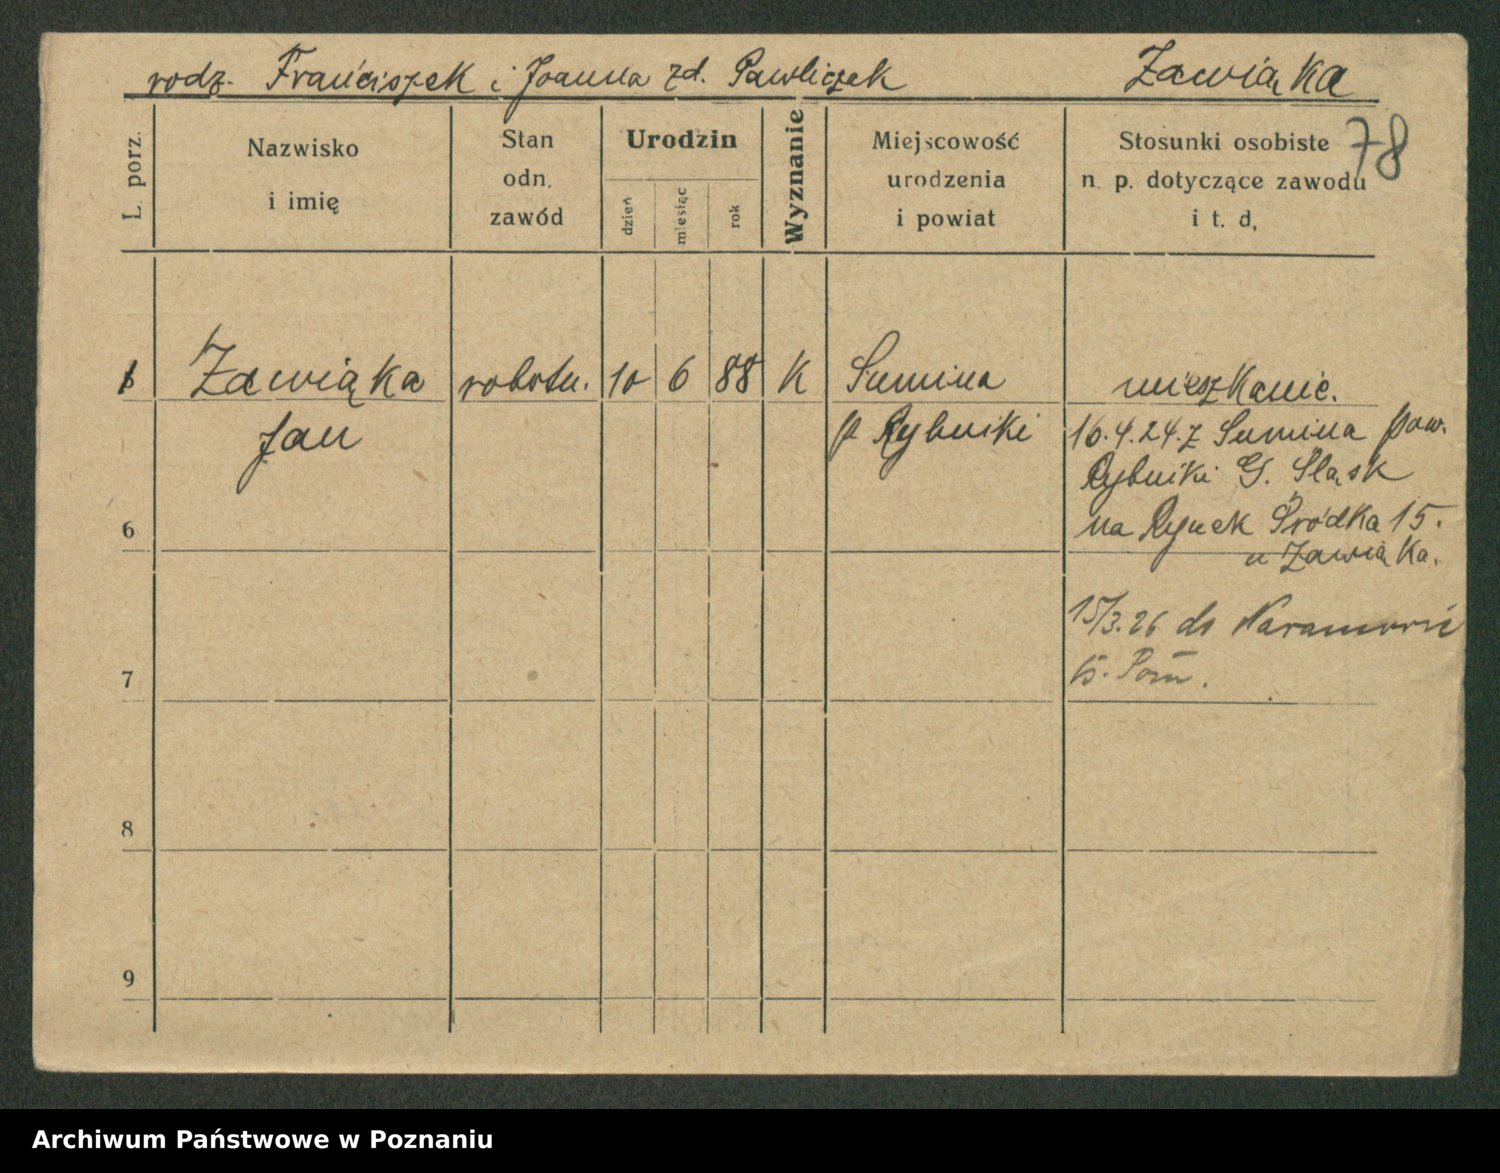 rodz. Franciszek i Joanna zd. Pawliczek Zawiąka
78
L. porz.
Nazwisko
i imię
Stan
odn.
zawód
Urodzin
dzień
miesiąc
rok
Wyznanie
Miejscowość
urodzenia
i powiat
Stosunki osobiste
n. p. dotyczące zawodu
i t. d.
Zawiąka robotn. 10 6 88 K Sumina mieszkanie.
Jan p Rybniki 16.4.24. z Sumina pow.
Rybniki G. Śląsk
6 na Rynek Śródka 15.
u Zawiąka.
15/3.26 do Naramowic
7
8
9
Archiwum Państwowe w Poznaniu